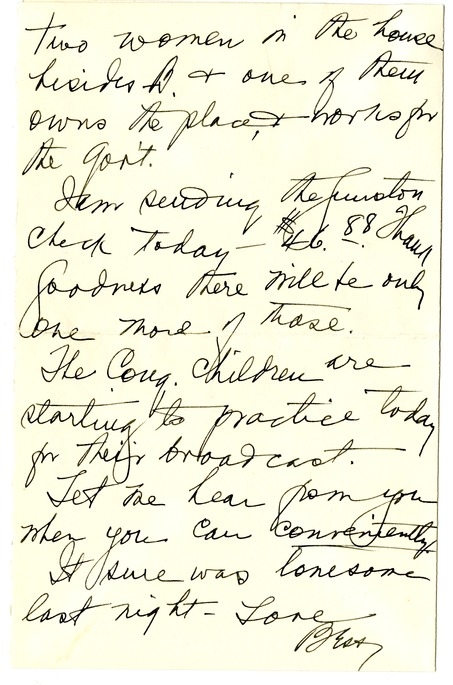 two women in the house
besides D. & one of them
owns the place, & works for
the Gov't.
I am sending the Funston
check today - $46.88. Thank
goodness there will be only
one more of those.
The Cong. children are
starting to practice today
for their broadcast.
Let me hear from you
when you can conveniently.
It sure was lonesome
last night - Love
Bess